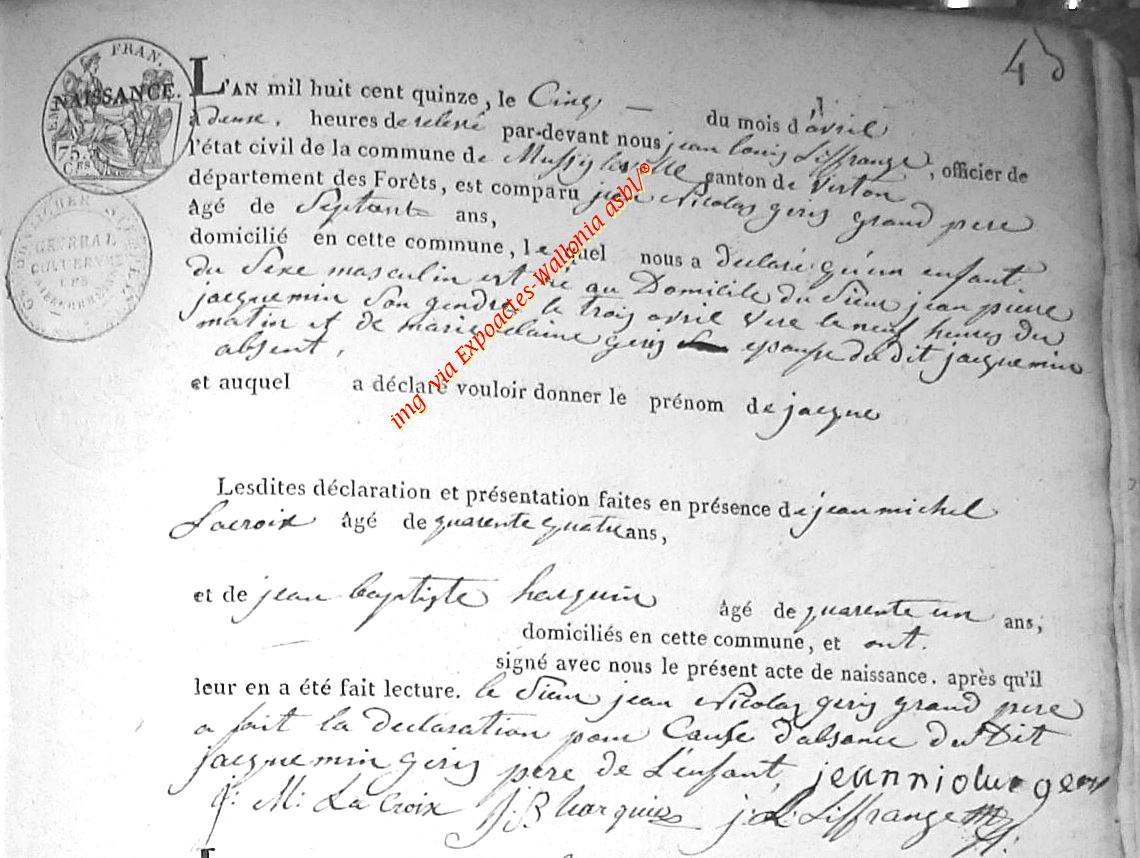 4
FRAN.
NAISSANCE.
75
CES
GENERAL
L'AN mil huit cent quinze, le Cinq — du mois d'avril
à deuxe, heures de relevé par-devant nous jean louis Liffrange, officier de
l'état civil de la commune de Mussy la ville canton de Virton
département des Forêts, est comparu jean Nicolas geris grand pere
âgé de Septante ans,
domicilié en cette commune, lequel nous a declaré qu'un enfant.
du Sexe masculin est né au Domicile du Sieur jean pierre
jacquemin Son gendre, le trois avril vere le neuf heures du
matin et de marie elaine geris epouse du dit jacquemin
absent,
et auquel a déclaré vouloir donner le prénom de jacque
img via Expoactes-Wallonia asbl/®
Lesdites déclaration et présentation faites en présence de jean michel
Lacroix âgé de quarente quatre ans,
et de jean baptiste harquin âgé de quarente un ans,
domiciliés en cette commune, et ont.
signé avec nous le présent acte de naissance, après qu'il
leur en a été fait lecture. le Sieur jean Nicolas geris grand pere
a fait la declaration pour Cause d'absance du Dit
jacquemin geris pere de L'enfant,
J: M: La Croix J. B harquin j. L. Liffrange